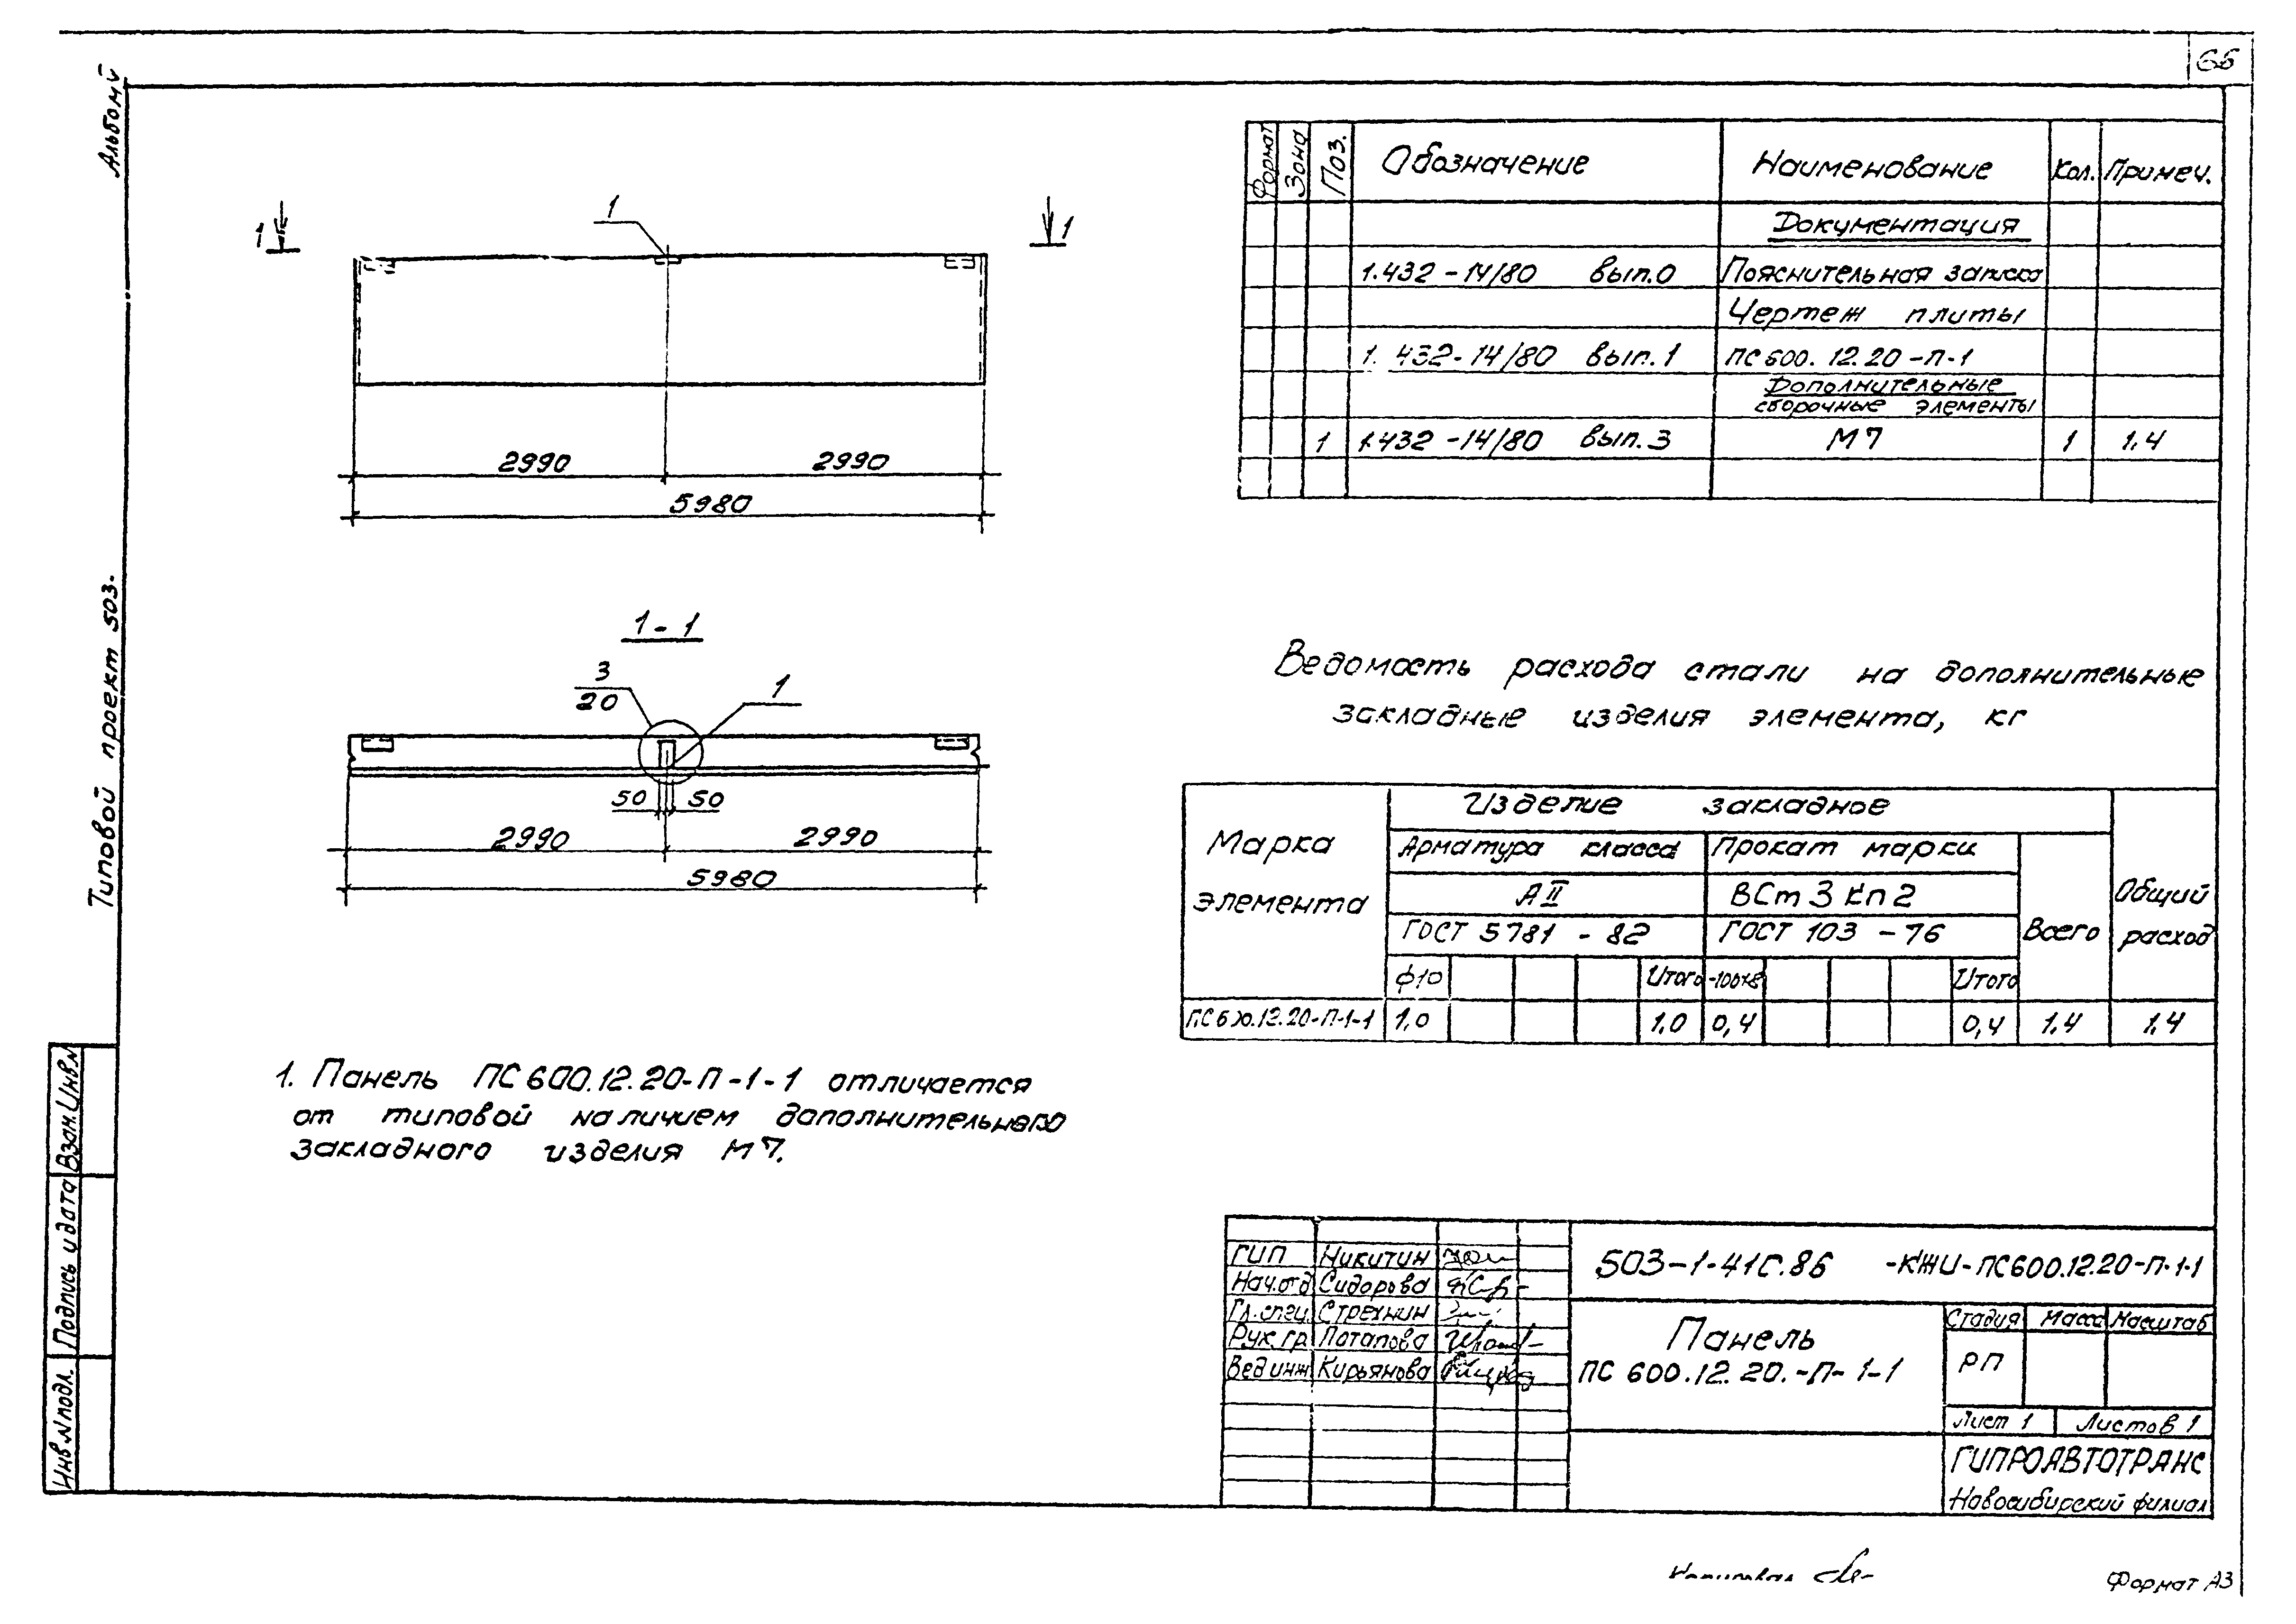 66
Альбом V
Типовой проект 503-
1
1
1
2990
2990
5980
1-1
3
20
1
50
50
2990
2990
5980
1. Панель ПС 600.12.20-П-1-1 отличается
от типовой наличием дополнительного
закладного изделия М7.
Формат
Зона
Поз.
Обозначение
Наименование
Кол.
Примеч.
Документация
1.432-14/80 вып.0
Пояснительная записка
Чертеж плиты
1.432-14/80 вып.1
ПС 600.12.20-П-1
Дополнительные
сборочные элементы
1
1.432-14/80 вып.3
М7
1
1.4
Ведомость расхода стали на дополнительные
закладные изделия элемента, кг
Марка
элемента
Изделие закладное
Арматура класса
Прокат марки
АII
ВСт3Кп2
ГОСТ 5781-82
ГОСТ 103-76
Всего
Общий
расход
ф10
Итого
-100х8
Итого
ПС 600.12.20-П-1-1
1,0
1.0
0,4
0,4
1.4
1.4
ГИП Никитин
Нач.отд Сидорова
Гл.спец. Стрехнин
Рук.гр. Потапова
Вед инж Кирьянова
503-1-41с.86 -КЖИ-ПС600.12.20-П-1-1
Панель
ПС 600.12.20.-П-1-1
Стадия
Масса
Масштаб
РП
Лист 1
Листов 1
ГИПРОАВТОТРАНС
Новосибирский филиал
Взам.Инв.N
Подпись и дата
Инв.N подл.
Копировал
Формат А3